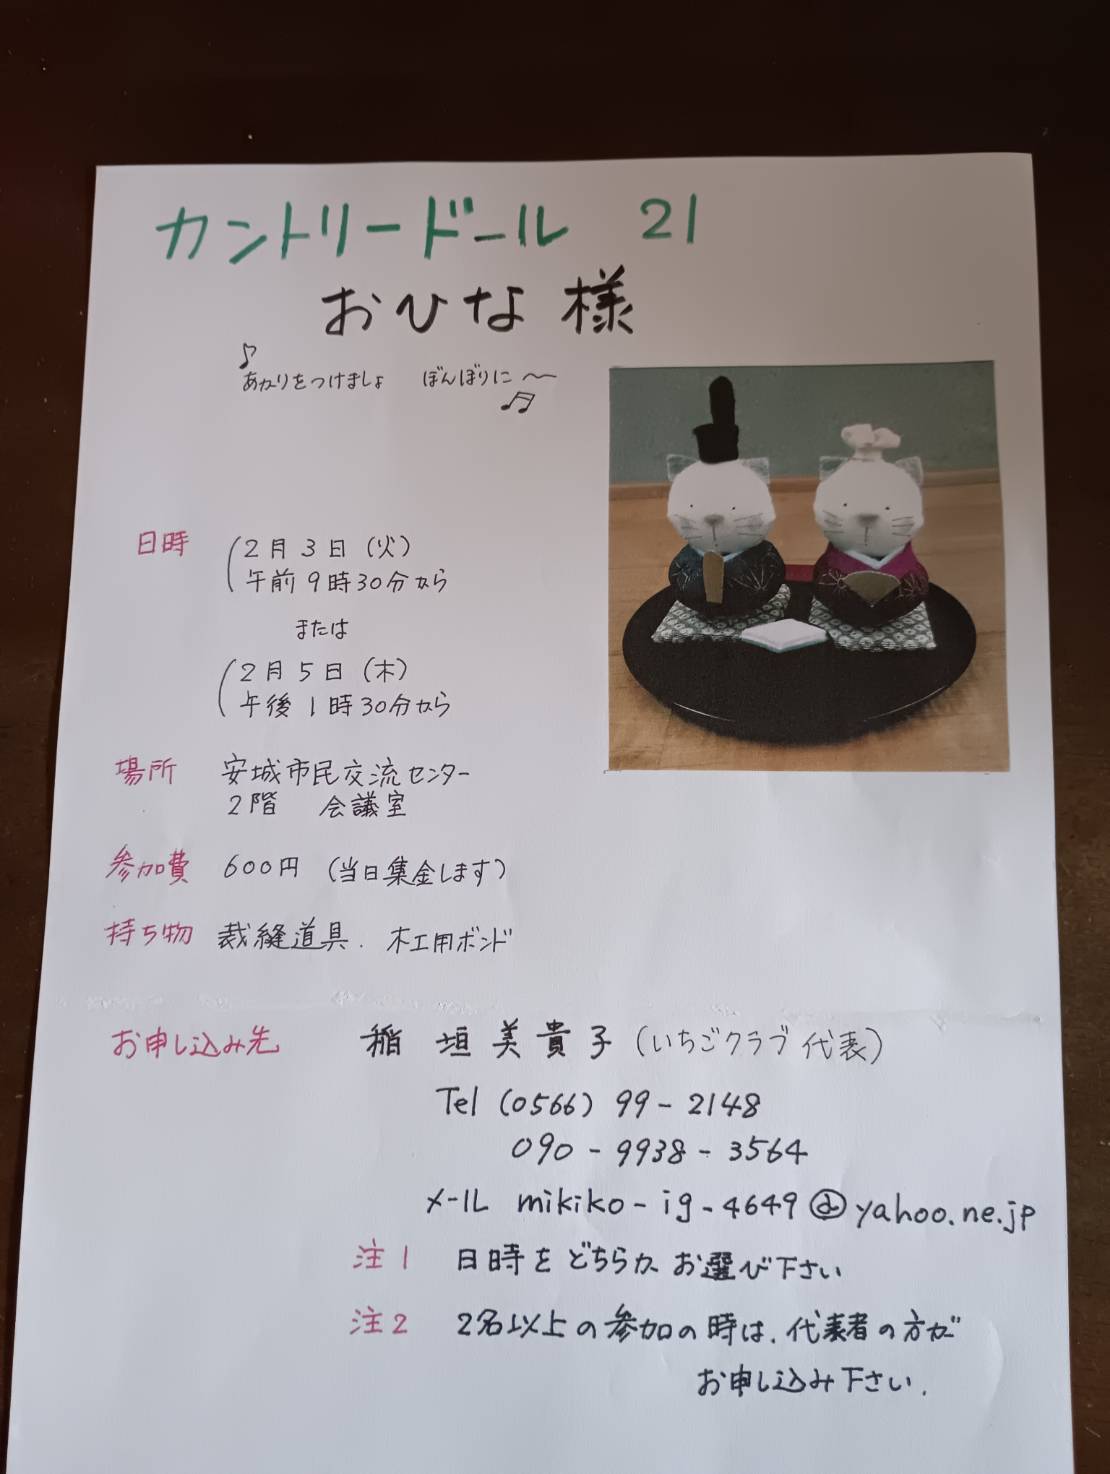 カントリードール 21
おひな様
♪
あかりをつけましょ ぼんぼりに〜
♬
日時 2月3日(火)
午前9時30分から
または
2月5日(木)
午後1時30分から
場所 安城市民交流センター
2階 会議室
参加費 600円 (当日集金します)
持ち物 裁縫道具. 木工用ボンド
お申し込み先 稲垣美貴子(いちごクラブ代表)
Tel (0566) 99-2148
090-9938-3564
メール mikiko-ig-4649@yahoo.ne.jp
注1 日時をどちらか お選び下さい
注2 2名以上の参加の時は、代表者の方が
お申し込み下さい.